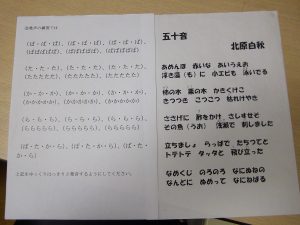 (ぱ・ぱ・ぱ)、(ぱ・ぱ・ぱ)、(ぱ・ぱ・ぱ)、
(ぱぱぱぱぱ)、(ぱぱぱぱぱ)、(ぱぱぱぱぱ)
(た・た・た)、(た・た・た)、(た・た・た)、
(たたたたた)、(たたたたた)、(たたたたた)
(か・か・か)、(か・か・か)、(か・か・か)、
(かかかかか)、(かかかかか)、(かかかかか)
(ら・ら・ら)、(ら・ら・ら)、(ら・ら・ら)、
(ららららら)、(ららららら)、(ららららら)
(ぱ・た・か・ら)、(ぱ・た・か・ら)、(ぱ・た・
か・ら)
五十音
北原白秋
あめんぼ 赤いな あいうえお
浮き藻(も)に 小エビも 泳いでる
柿の木 栗の木 かきくけこ
きつつき こつこつ 枯れけやき
ささげに 酢をかけ さしすせそ
その魚(うお) 浅瀬で 刺しました
立ちましょ らっぱで たちつてと
トテトテ タッタと 飛び立った
なめくじ のろのろ なにぬねの
なんどに ぬめって なにねばる